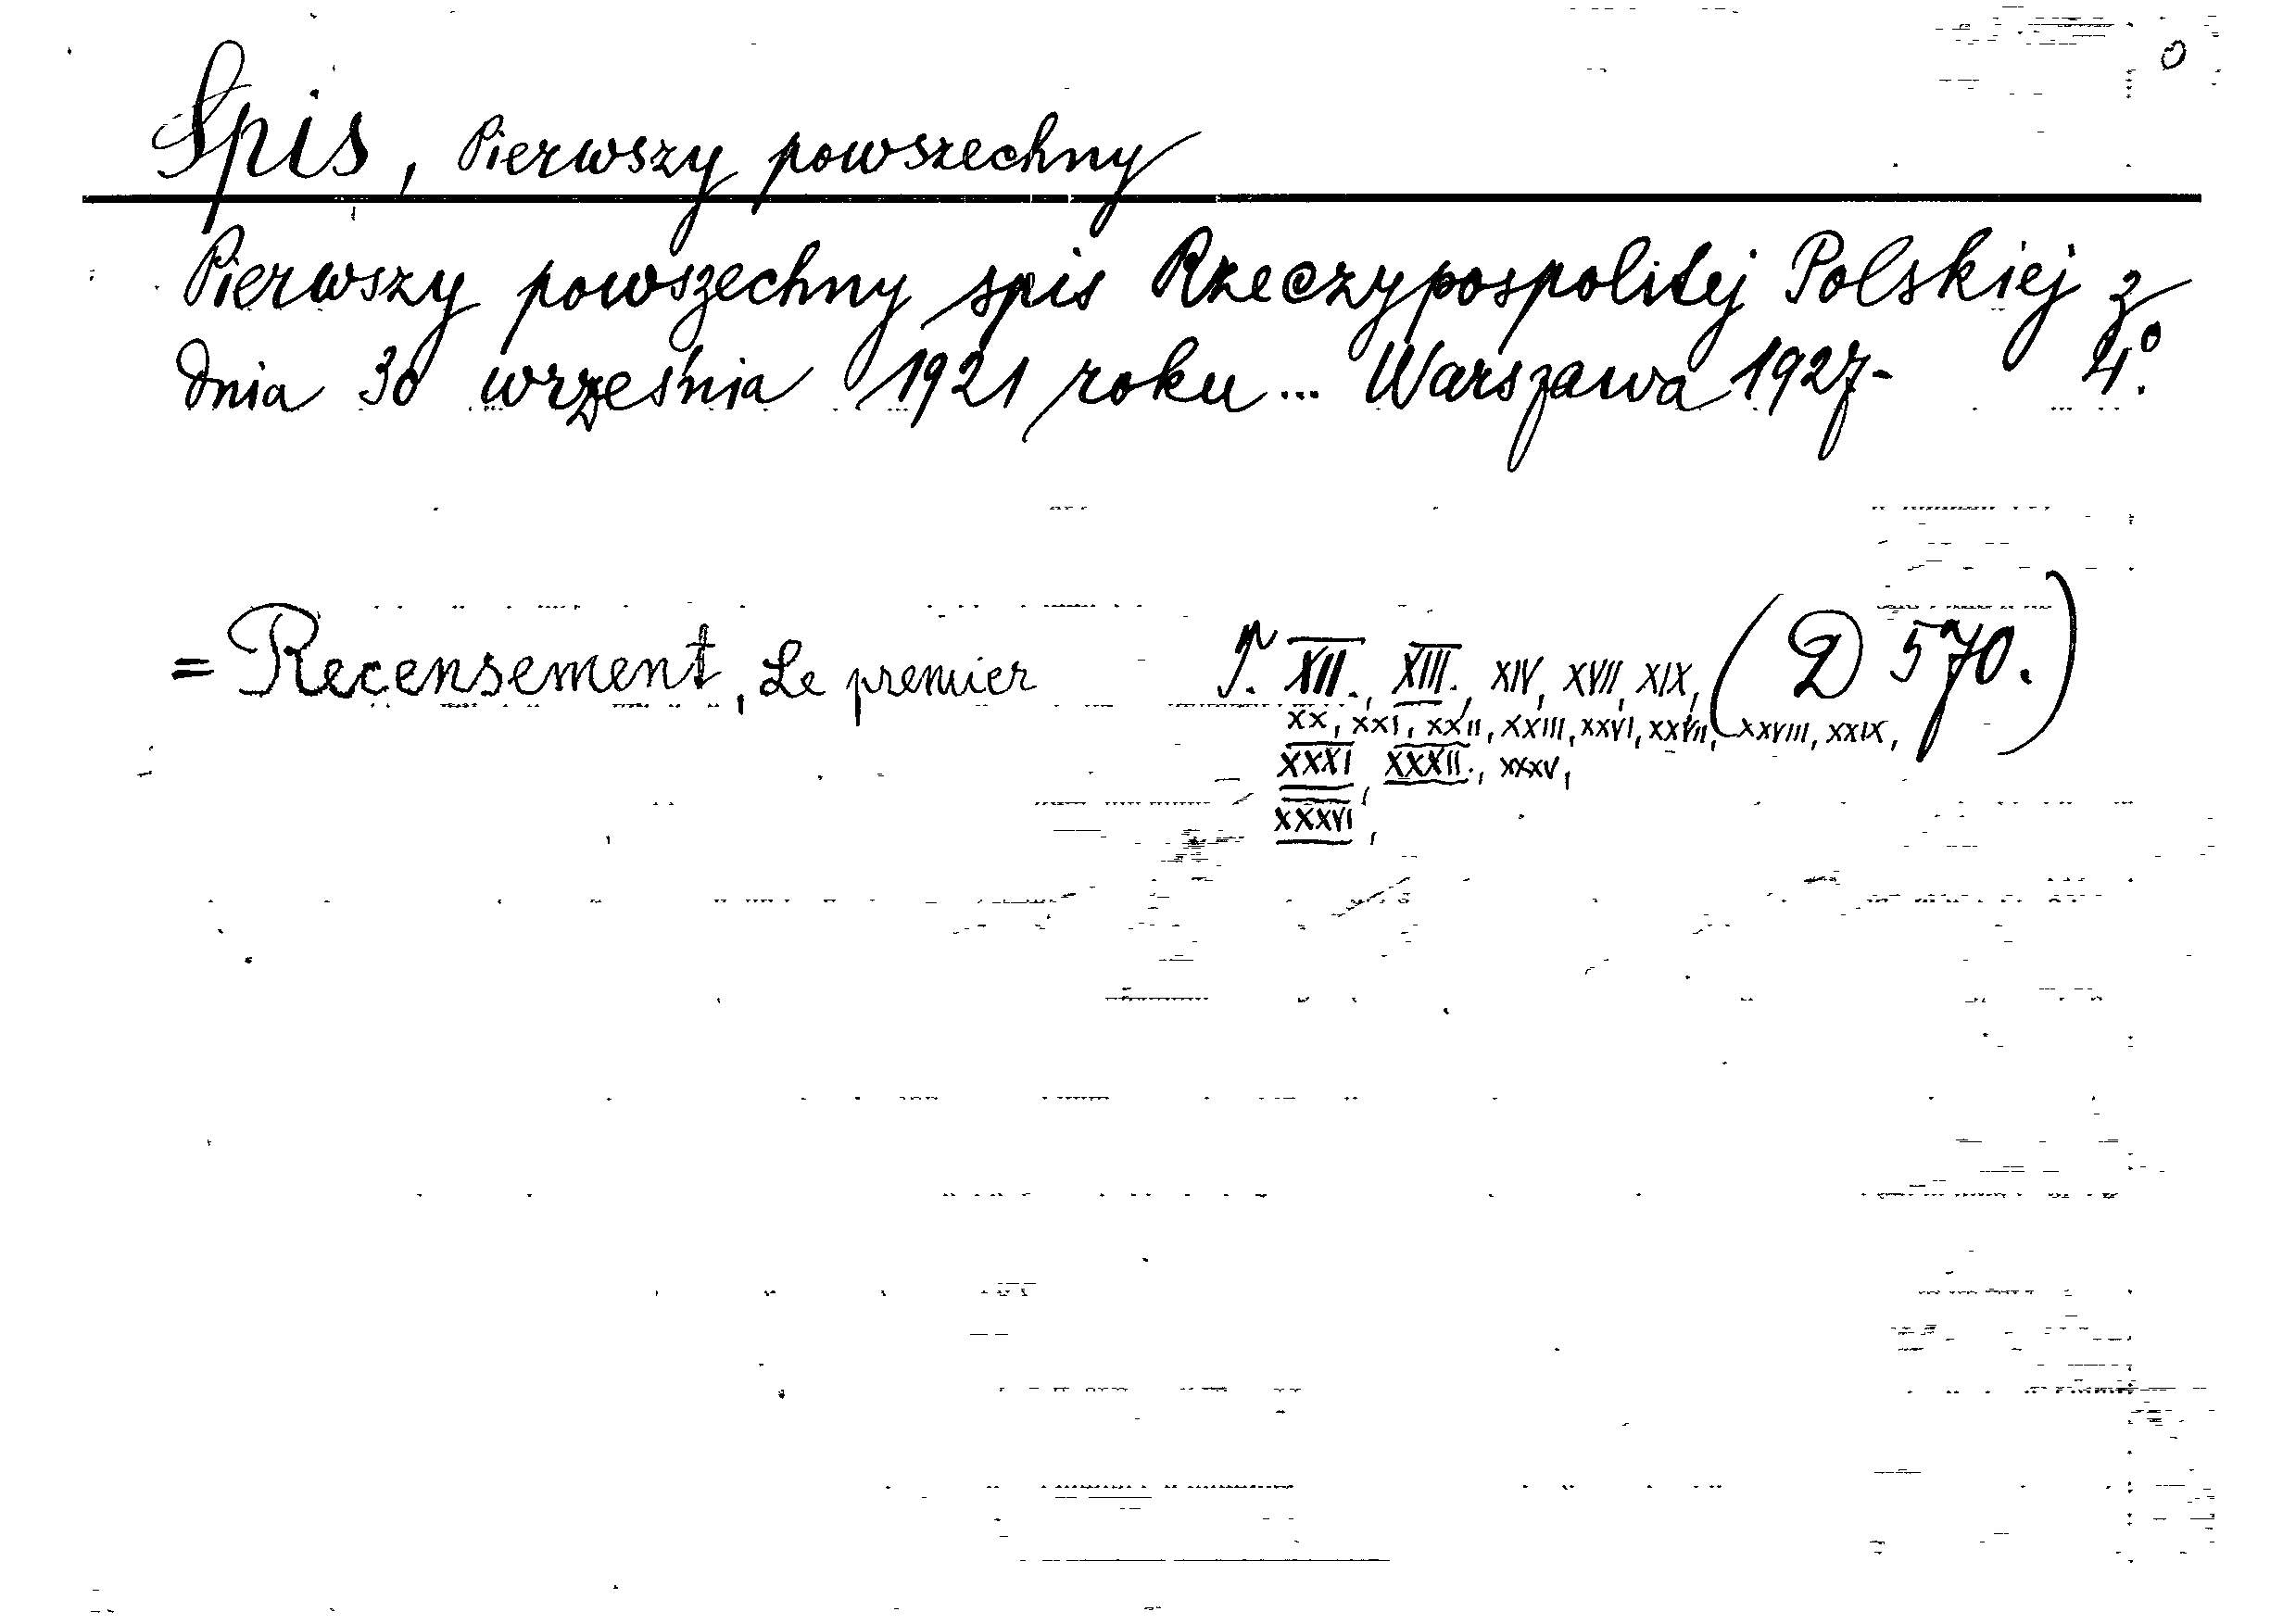 Spis, Pierwszy powszechny
Pierwszy powszechny spis Rzeczypospolitej Polskiej z
dnia 30 września 1921 roku... Warszawa 1927- 4°.
= Recensement, Le premier T. XII., XIII., XIV, XVII, XIX, (D 570.)
XX, XXI, XXII, XXIII, XXVI, XXVII, XXVIII, XXIX,
XXXI, XXXII., XXXV,
XXXVI,